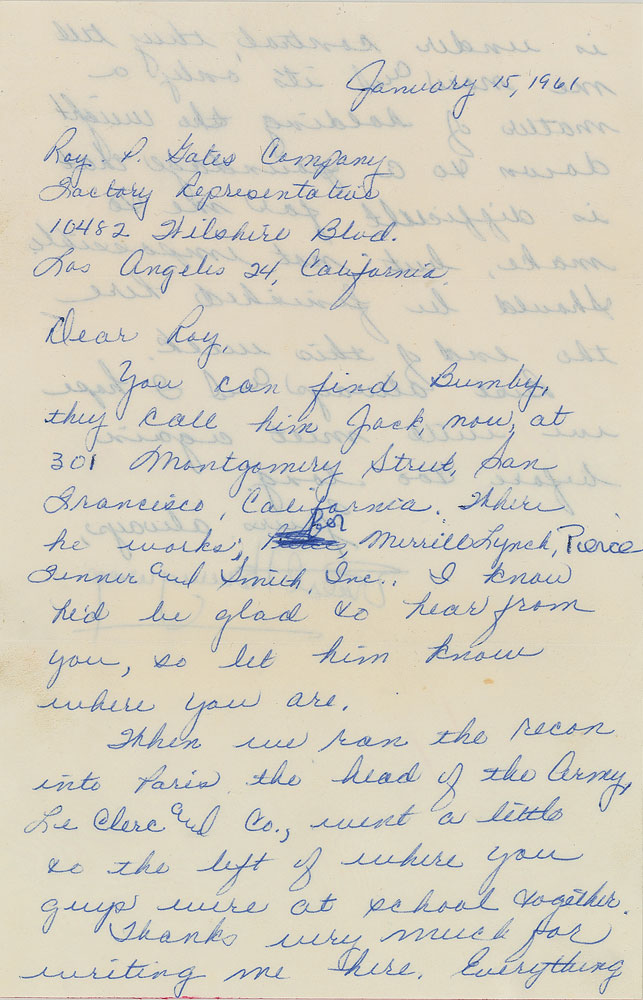 January 15, 1961
Roy. P. Gates Company
Factory Representative
10482 Wilshire Blvd.
Los Angeles 24, California
Dear Roy,
You can find Bumby,
they call him Jack now, at
301 Montgomery Street, San
Francisco, California. Where
he works;
Merrill Lynch, Pierce
Fenner and Smith, Inc.. I know
he'd be glad to hear from
you, so let him know
where you are.
When we ran the recon
into Paris the head of the Army,
Le Clerc and Co., went a little
to the left of where you
guys were at school together.
Thanks very much for
writing me here. Everything